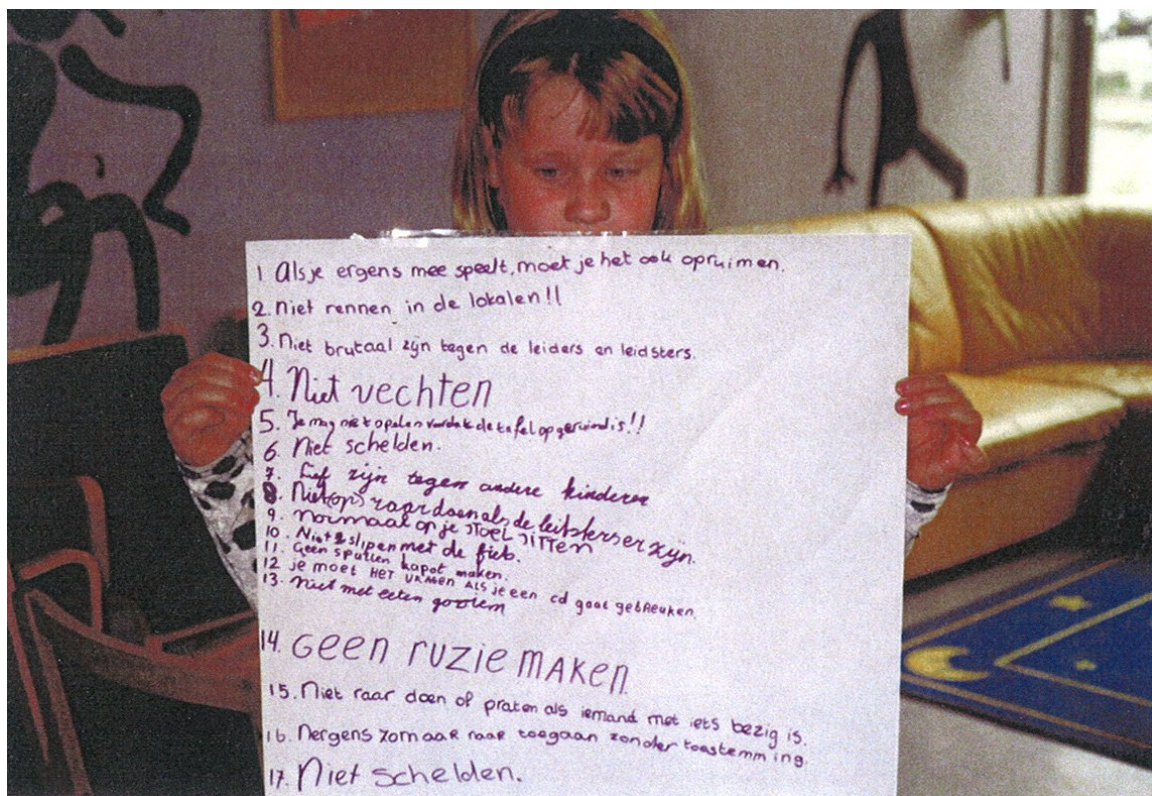 1 Als je ergens mee speelt, moet je het ook opruimen.
2. Niet rennen in de lokalen!!
3. Niet brutaal zijn tegen de leiders en leidsters.
4. Niet vechten
5. Je mag niet opelen voordat de tafel opgeruimd is!!
6. Niet schelden.
7. Lief zijn tegen andere kinderen
8. Niet (op) raar doen als de leidsters er zijn.
9. normaal op je stoel zitten
10. Niet slipen met de fiets.
11. Geen spullen kapot maken.
12 je moet HET VRAGEN ALS je een cd gaat gebReuken.
13. niet met eeten gooien
14. GEEN RUZIE MAKEN
15. Niet raar doen of praten als iemand met iets bezig is.
16. Nergens zomaar naar toegaan zonder toestemming.
17. Niet schelden.